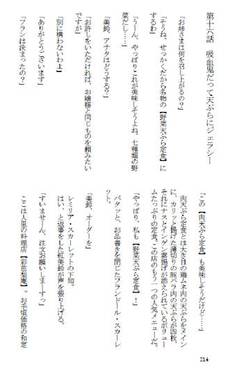 第十六話　吸血鬼だって天ぷらにジェラシー
「お姉さまは何を召し上がるの？」
「そうね、せっかくだから名物の【野菜天ぷら定食】に
するわ」
「うーん、やっぱりこれが美味しそうよね、七種類の野
菜だしー」
「美鈴、アナタはどうする？」
「お許しをいただければ、お嬢様と同じものを頼みたい
ですが」
「別に構わないわよ」
「ありがとうございます」
「フランは決まったの？」
「この【肉天ぷら定食】も美味しそうだけど……」
肉天ぷら定食とは大き目の鶏ムネ肉の天ぷらをメイン
に、カリッと揚げた薄切りの豚バラ肉の天ぷらが四枚、
それにナスとインゲン素揚げが添えられているボリュー
ムたっぷりの定食。この店のもう一つの人気メニューだ。
「やっぱり、私も【野菜天ぷら定食】」
パタッと、お品書きを閉じたフランドール・スカーレ
ット。
「美鈴、オーダーを」
レミリア・スカーレットの下知。
はい、と返事をした紅美鈴が声を張り上げる。
「すいませーん、注文お願いしまーすっ」
ここは人里の料理店 お手頃価格の和定
214